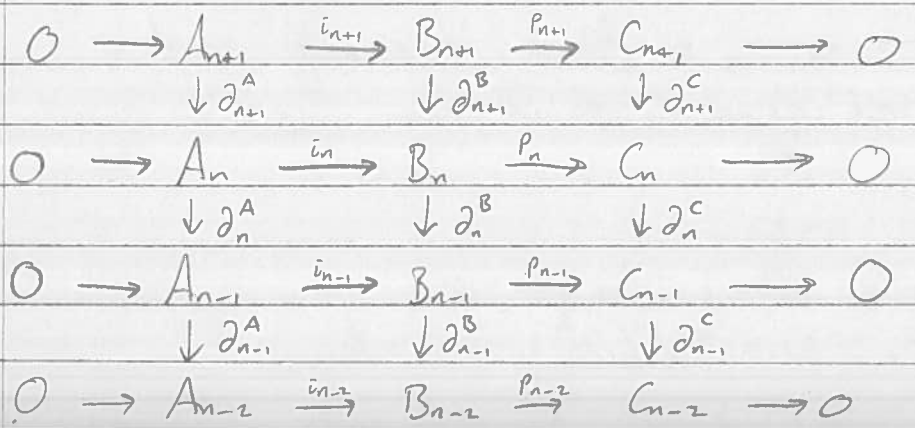 0 → Aₙ₊₁ —iₙ₊₁→ Bₙ₊₁ —pₙ₊₁→ Cₙ₊₁ → 0
↓ ∂ᴬₙ₊₁ ↓ ∂ᴮₙ₊₁ ↓ ∂ᶜₙ₊₁
0 → Aₙ —iₙ→ Bₙ —pₙ→ Cₙ → 0
↓ ∂ᴬₙ ↓ ∂ᴮₙ ↓ ∂ᶜₙ
0 → Aₙ₋₁ —iₙ₋₁→ Bₙ₋₁ —pₙ₋₁→ Cₙ₋₁ → 0
↓ ∂ᴬₙ₋₁ ↓ ∂ᴮₙ₋₁ ↓ ∂ᶜₙ₋₁
0 → Aₙ₋₂ —iₙ₋₂→ Bₙ₋₂ —pₙ₋₂→ Cₙ₋₂ → 0